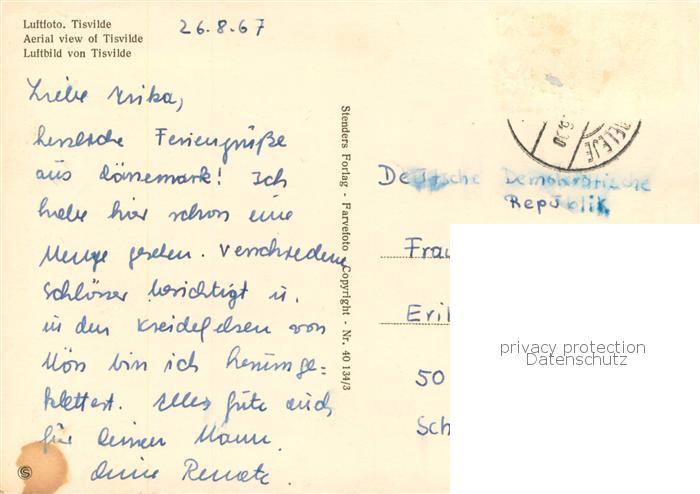 Luftfoto. Tisvilde
Aerial view of Tisvilde
Luftbild von Tisvilde
26.8.67
Liebe Erika,
herzliche Feriengrüße
aus Dänemark! Ich
habe hier schon eine
Menge gesehen. Verschiedene
Schlösser besichtigt u.
in den Kreidefelsen von
Mön bin ich herumge=
klettert. Alles Gute auch
für Deinen Mann.
Deine Renate.
Stenders Forlag - Farvefoto Copyright - Nr. 40 134/3
Deutsche Demokratische
Republik
Frau
Eri
50
Sch
privacy protection
Datenschutz